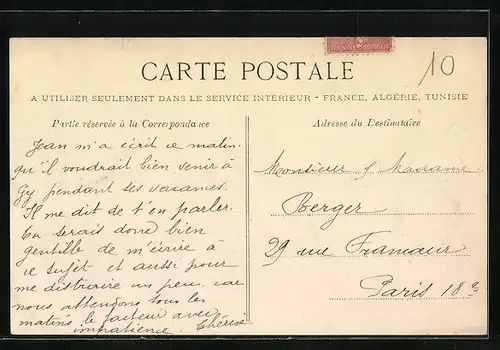 10
CARTE POSTALE
A UTILISER SEULEMENT DANS LE SERVICE INTÉRIEUR - FRANCE, ALGÉRIE, TUNISIE
Partie réservée à la Correspondance
Jean m'a écrit ce matin
qu'il voudrait bien venir à
Gy pendant ses vacances.
Il me dit de t'en parler.
Tu serais donc bien
gentille de m'écrire à
ce sujet et aussi pour
me distraire un peu, car
nous attendons tous les
matins le facteur avec
impatience. Thérèse
Adresse du Destinataire
Monsieur & Madame
Berger
29 rue
Paris 18e